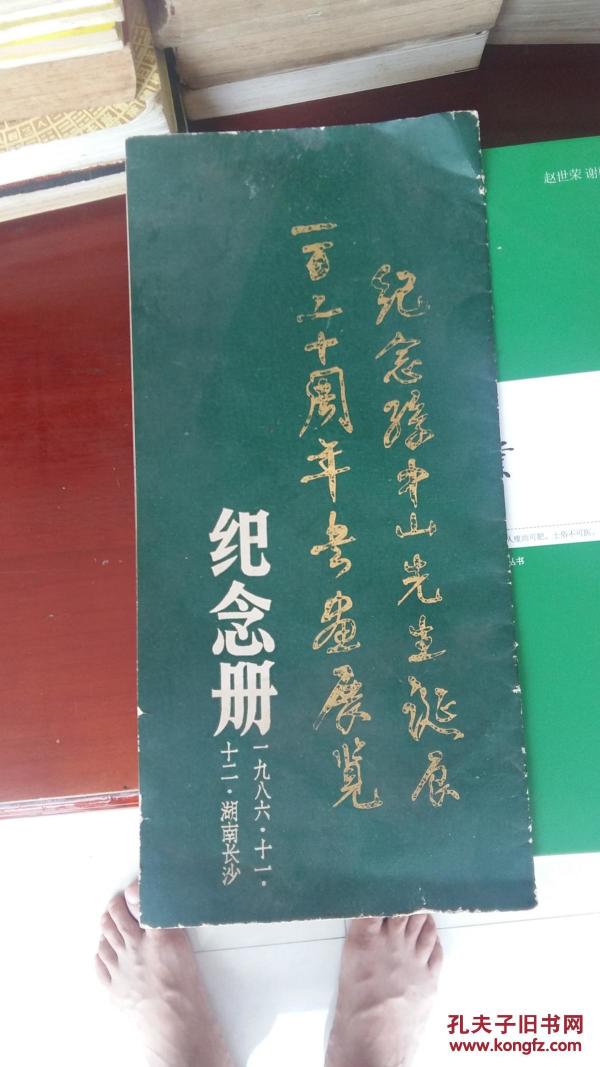 纪念孙中山先生诞辰
一百二十周年书画展览
纪念册
一九八六·十一·
十二·湖南长沙
赵世荣 谢
人瘦尚可肥，士俗不可医。
丛书
孔夫子旧书网
www.kongfz.com